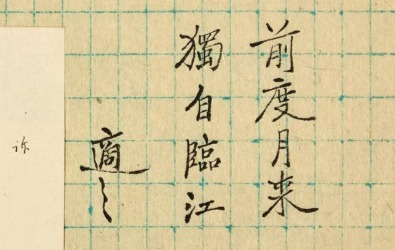 前度月来
獨自臨江
適之